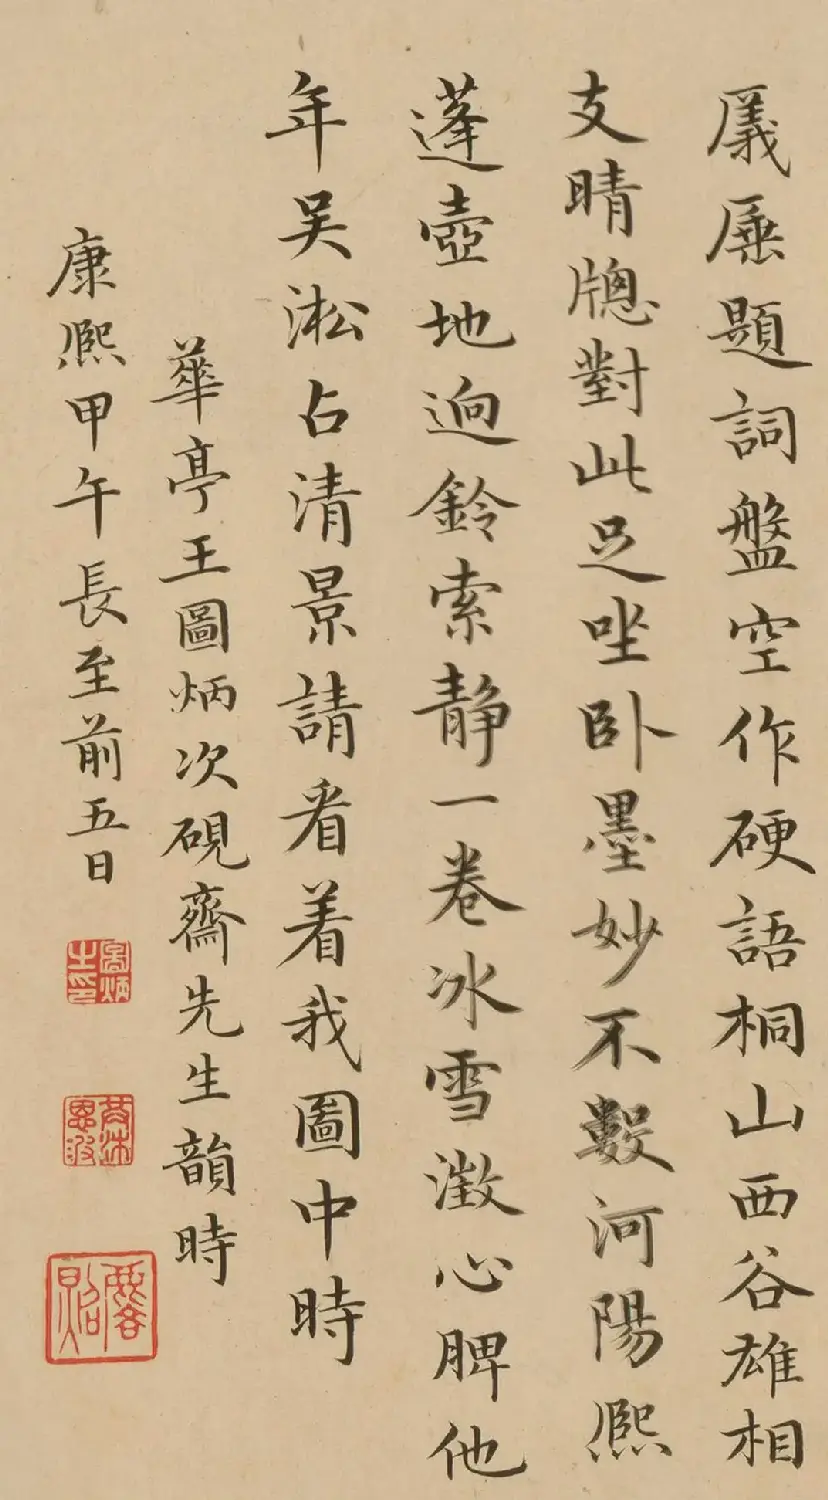 㕒題詞盤空作硬語桐山西谷雄相
支晴牕對此足坐卧墨妙不數河陽熙
蓬壺地迥鈴索靜一卷冰雪澂心脾他
年吴淞占清景請看着我圖中時
華亭王圖炳次硯齋先生韻時
康熙甲午長至前五日
圖炳之印